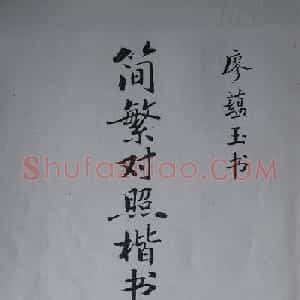 廖蕴玉书
简繁对照楷书
Shufaziliao.com